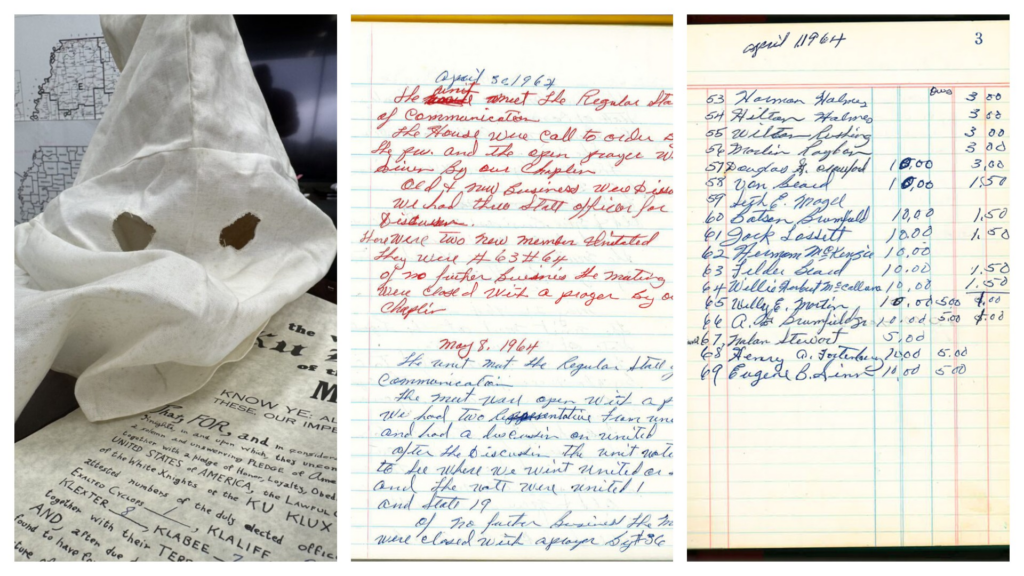 the
Ku
of the
M
KNOW YE: AL
THESE, OUR IMPE
That, FOR, and in consider
Knights in and upon which they
a solemn and unswerving PLEDGE of
together with a Pledge of Honor, Loyalty, Obed
UNITED STATES of AMERICA, the LAWFUL
of the White Knights of the KU KLUX
attested numbers of the duly elected offic
EXALTED CYCLOPS 1, KLALIFF
KLEXTER 8, KLABEE
together with their TERR
AND, after due
found to have
april 30, 1964
the unit met the Regular Sta
of Communication
the House were call to order
the and the open prayer w
Given By our Chaplin
Old & new Business were Disc
we had three Staff officer for
Discussion.
there were two new member
they were #63 #64
of no futher Buisnis the mating
were closed with a prayer By o
Chaplin
May 8, 1964
the unit met the Regular Staff
Communication
the meet ware open with a p
we had two from
and had a discussin on united
after the discussin the unit vote
to see where we wint united or
and the vott were united 1
and State 19
of no futher Business the m
were closed with a prayer By #36
april 1, 1964
3
Dues
53 Norman Halmes 3 00
54 Hilton Halmes 3 00
55 Wilton Rushing 3 00
56 Marlin Rayborn 3 00
57 Douglas 10.00 3.00
58 Von Beard 10.00 1.50
59 Seth E. Magel
60 Batson Brumfield 10,00 1.50
61 Jock Lossett 10.00 1.50
62 Hermom McKenzie 10.00
63 Filder Beard 10.00 1.50
64 Willie Hubert McCullar 10.00 1.50
65 Willy E. Martin 10.00 5.00
66 A. Brumfield 10.00 5.00
67, Stewart 5.00
68 Henry A. 10.00 5.00
69 Eugene B. 10.00 5.00